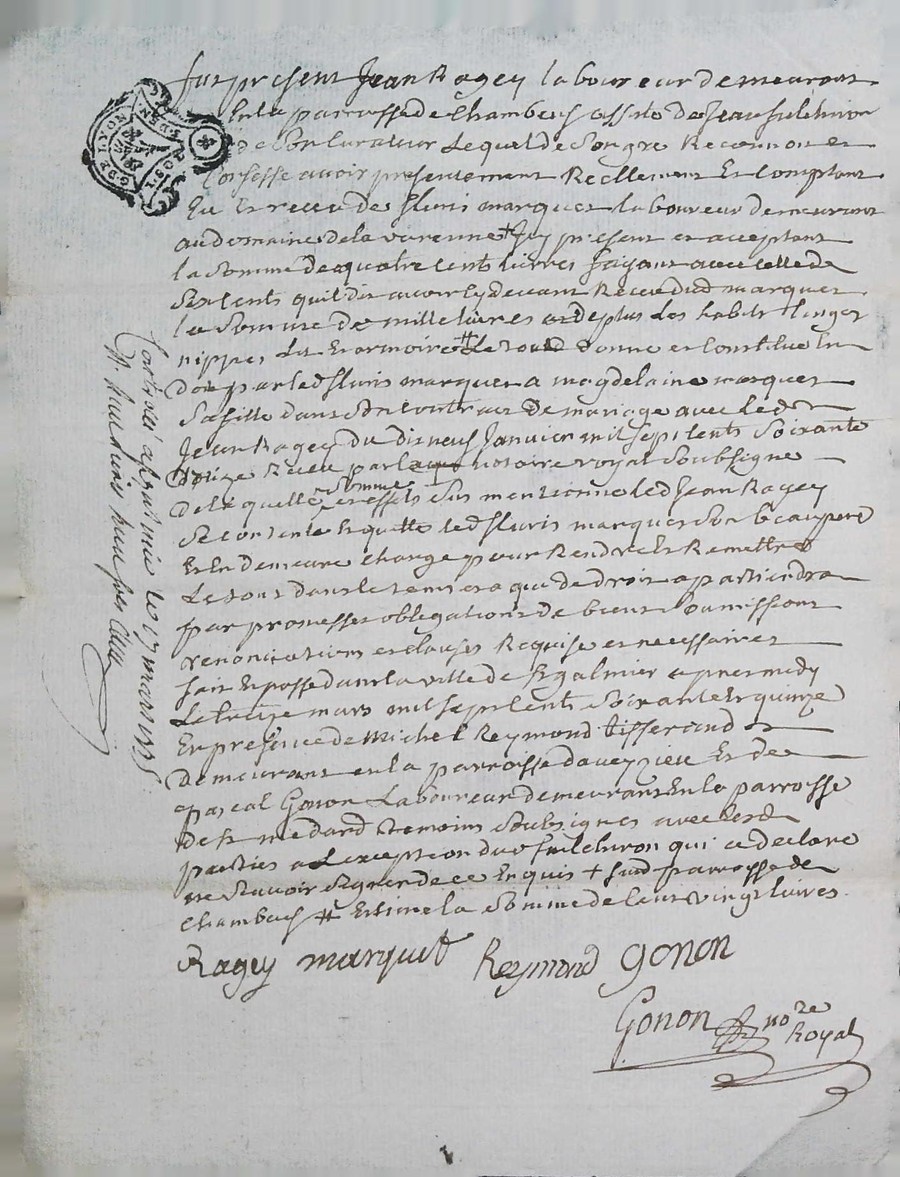 fut present Jean Ragey laboureur demeurant
En la parroisse de Chambeuf assisté de Jean fulchiron
de Son Curateur Lequel de Son gre Reconnoit et
Confesse avoir presentement Reellement Et Comptant
Eu Et receu de fleuris marquet laboureur demeurant
au domaine de la varenne + Icy present et acceptant
la Somme de quatre cents livres faisant avec celle de
Six cents quil dit avoir cy devant Receu dud marquet
la Somme de mille livres et de plus les habits linges
nippes lit Et armoire # Le tout donné et Constitué En
dot par led fleuris marquet a magdelaine marquet
Sa fille dans Son Contrat de mariage avec led
Jean Ragey du dix neuf Janvier mil sept cents Soixante
Receu par notaire royal Soubsigné
De laquelle Somme et effets Sus mentionne led Jean Ragey
Se contente Et quitte led fleuris marquet Son beaupere
Et En demeure chargé pour Rendre Et Remettre
Le tout dans le tems et a qui de droit apartiendra
par promesses obligations de biens Soumissions
renonciations et clauses Requise et necessaires
fait Et passé dans la ville de St galmier apres midy
Le treize mars mil sept cents Soixante Et quinze
En presence de Michel Reymond tisserand
Demeurant en la parroisse daveyzieu Et de
pascal Gonon Laboureur demeurant En la parroisse
de St medard temoins Soubsignes avec lesd
parties a Lexception dud fulchiron qui a declaré
ne Scavoir Signer de ce Enquis + sud parroisse de
Chambeuf # Estimé la Somme de Cent vingt livres
Ragey marquet Reymond gonon
Gonon no.re
Royal
a St galmier le 17 mars 1775
G. DE LYON